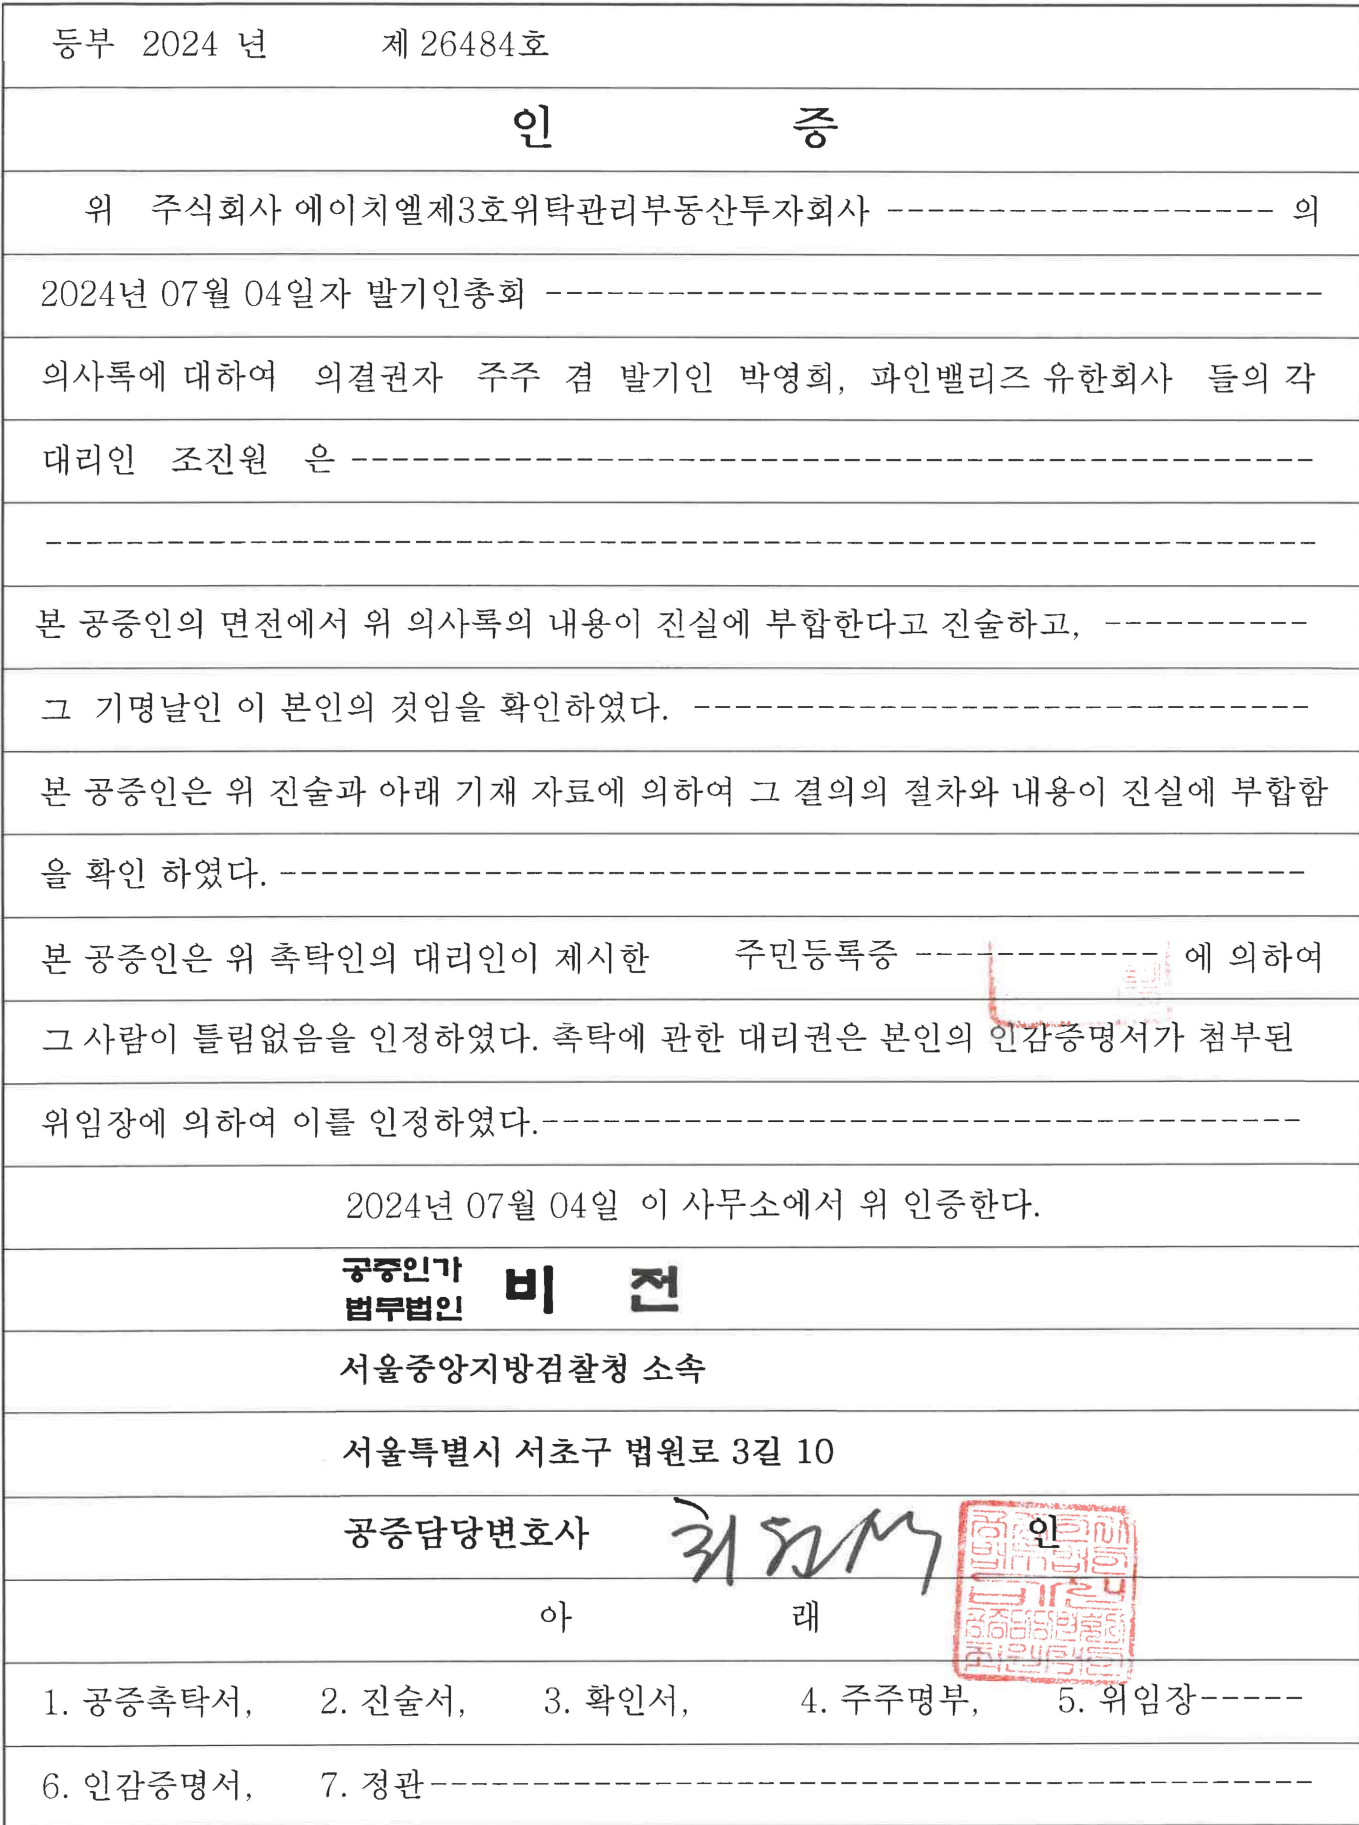 등부 2024 년 제 26484호
인 증
위 주식회사 에이치엘제3호위탁관리부동산투자회사 ------------------- 의
2024년 07월 04일자 발기인총회 --------------------------------------
의사록에 대하여 의결권자 주주 겸 발기인 박영희, 파인밸리즈 유한회사 들의 각
대리인 조진원 은 -----------------------------------------------
---------------------------------------------------------------
본 공증인의 면전에서 위 의사록의 내용이 진실에 부합한다고 진술하고, ----------
그 기명날인 이 본인의 것임을 확인하였다. ------------------------------
본 공증인은 위 진술과 아래 기재 자료에 의하여 그 결의의 절차와 내용이 진실에 부합함
을 확인 하였다. --------------------------------------------------
본 공증인은 위 촉탁인의 대리인이 제시한 주민등록증 ------------ 에 의하여
그 사람이 틀림없음을 인정하였다. 촉탁에 관한 대리권은 본인의 인감증명서가 첨부된
위임장에 의하여 이를 인정하였다.-------------------------------------
2024년 07월 04일 이 사무소에서 위 인증한다.
공증인가
법무법인 비 전
서울중앙지방검찰청 소속
서울특별시 서초구 법원로 3길 10
공증담당변호사 인
아 래
1. 공증촉탁서, 2. 진술서, 3. 확인서, 4. 주주명부, 5. 위임장-----
6. 인감증명서, 7. 정관-------------------------------------------